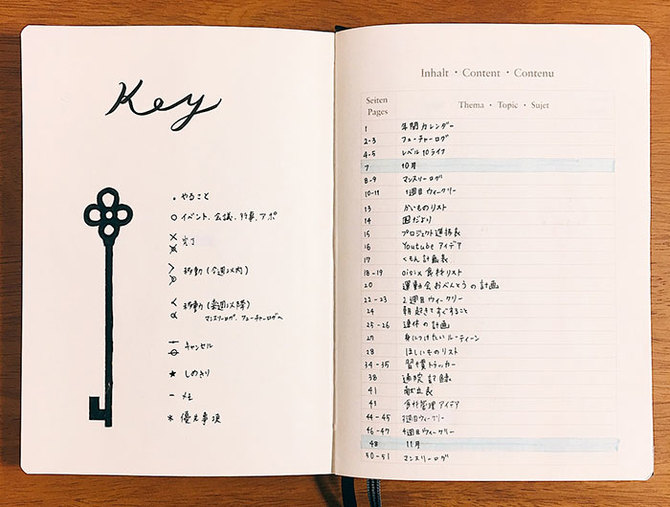 Key
• やること
○ イベント、会議、行事、アポ
× 完了
> 移動(今週以内)
< 移動(来週以降)
マンスリーログ、フューチャーログへ
キャンセル
★ しめきり
- メモ
* 優先事項
Inhalt • Content • Contenu
Seiten Pages Thema • Topic • Sujet
1 年間カレンダー
2-3 フューチャーログ
4-5 レベル10ライフ
7 10月
8-9 マンスリーログ
10-11 1週目ウィークリー
13 かいものリスト
14 園だより
15 プロジェクト進捗表
16 Youtube アイデア
17 くもん計画表
18-19 oisix 食料リスト
20 運動会おべんとうの計画
22-23 2週目ウィークリー
24 朝起きてすぐすること
25-26 連休の計画
27 身につけたいルーティーン
28 ほしいものリスト
34-35 習慣トラッカー
38 通院記録
41 献立表
43 管理アイデア
44-45 週目ウィークリー
46-47 4週目ウィークリー
48 11月
50-51 マンスリーログ